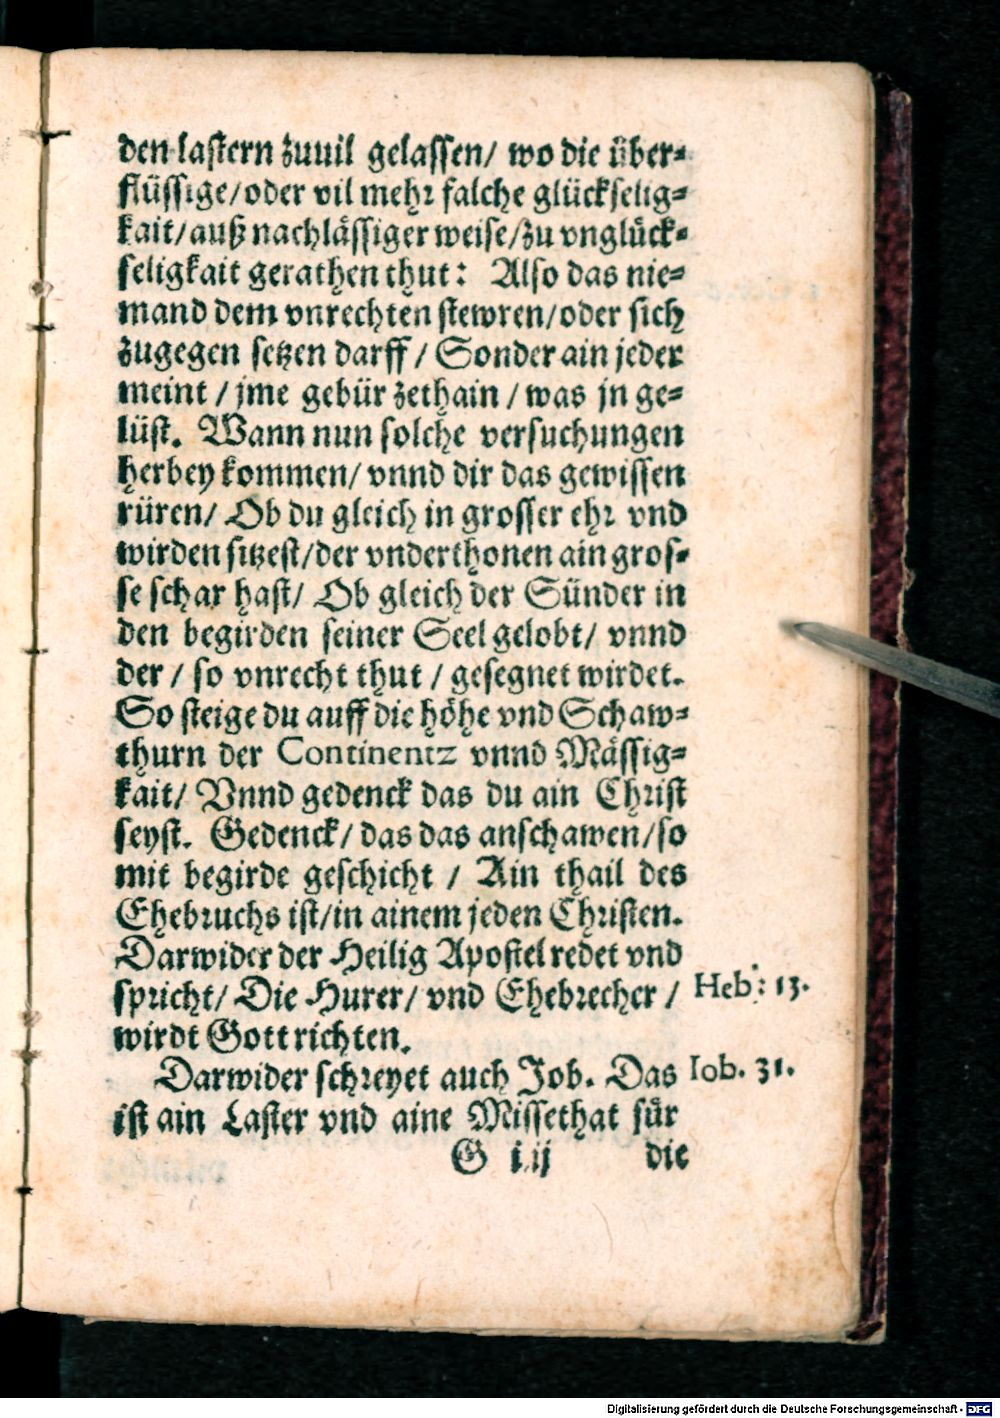 den lastern zuuil gelassen/ wo die über-
flüssige/oder vil mehr falche glückselig-
kait/auß nachlässiger weise/zu vnglück-
seligkait gerathen thut: Also das nie-
mand dem vnrechten stewren/oder sich
zugegen setzen darff/ Sonder ain jeder
meint/ jme gebür zethain/ was jn ge-
lüst. Wann nun solche versuchungen
herbey kommen/ vnnd dir das gewissen
rüren/ Ob du gleich in grosser ehr vnd
wirden sitzest/der vnderthonen ain gros-
se schar hast/ Ob gleich der Sünder in
den begirden seiner Seel gelobt/ vnnd
der/ so vnrecht thut/ gesegnet wirdet.
So steige du auff die höhe vnd Schaw-
thurn der Continentz vnnd Mässig-
kait/ Vnnd gedenck das du ain Christ
seyst. Gedenck/ das das anschawen/so
mit begirde geschicht/ Ain thail des
Ehebruchs ist/in ainem jeden Christen.
Darwider der Heilig Apostel redet vnd
spricht/ Die Hurer/ vnd Ehebrecher/ Heb: 13.
wirdt Gott richten.
Darwider schreyet auch Job. Das Iob. 31.
ist ain Laster vnd aine Missethat für
G iij die
Digitalisierung gefördert durch die Deutsche Forschungsgemeinschaft - DFG